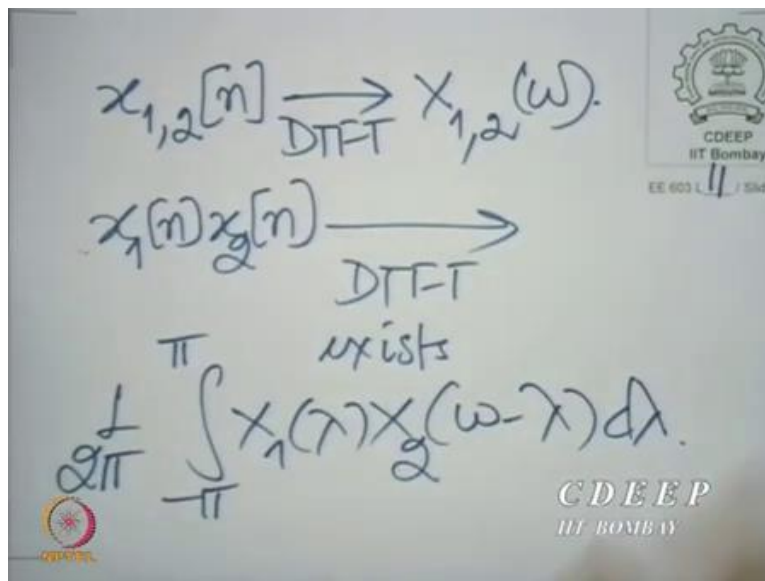 x₁,₂[n] → X₁,₂(ω).
DTFT
CDEEP
IIT Bombay
EE 603 L 11 / Slid
x₁[n] x₂[n] →
DTFT
exists
1/2π ∫_{-π}^{π} X₁(λ) X₂(ω-λ) dλ.
CDEEP
IIT BOMBAY
NPTEL